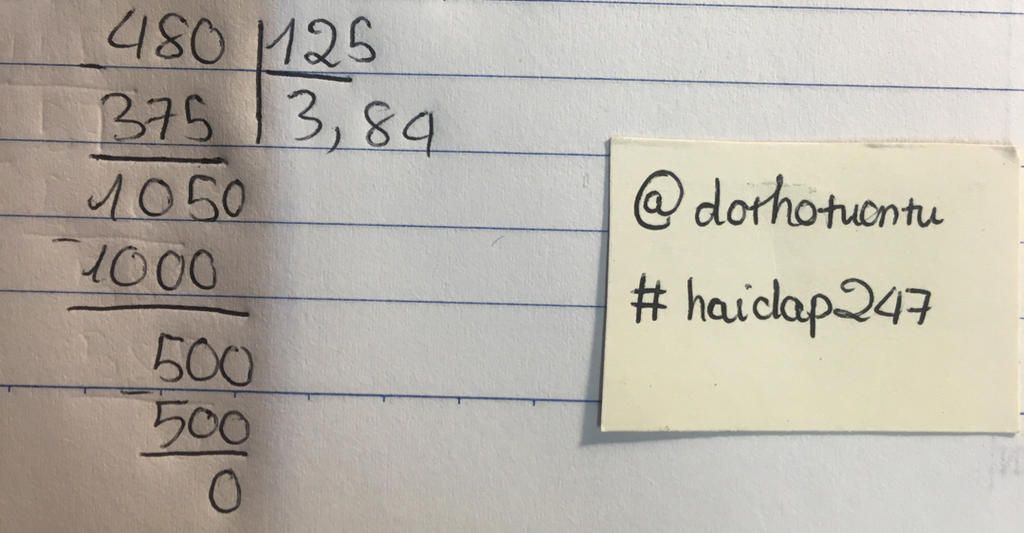 480 125
- 375 3,84
1050
- 1000
500
- 500
0
@dothotuantu
#haidap247